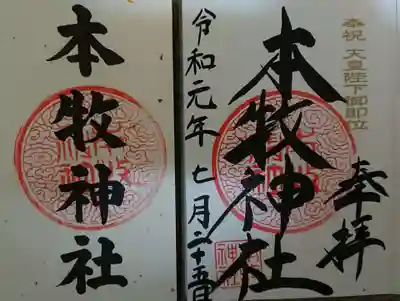 奉祝 天皇陛下御即位
奉拝
本牧神社
令和元年七月二十五日
本牧神社